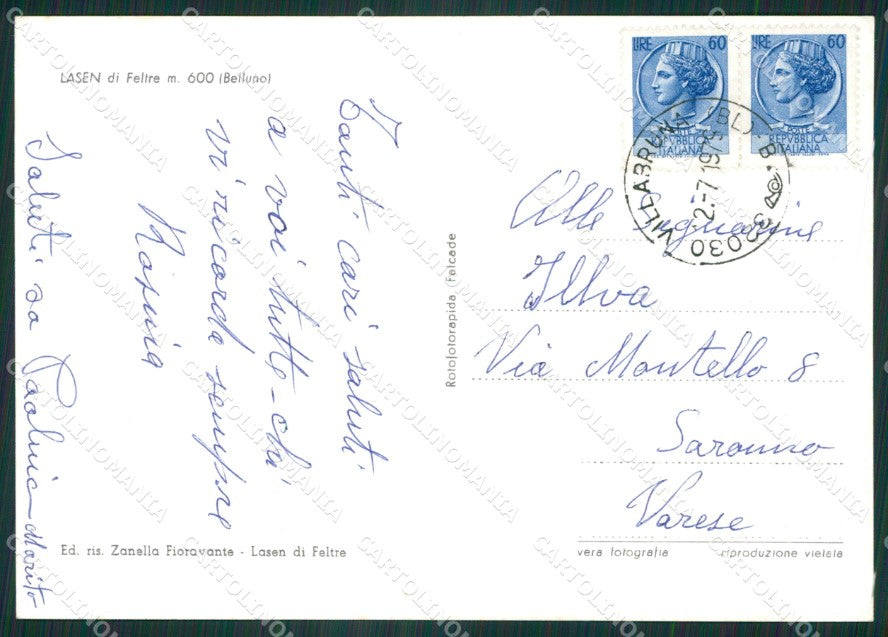 LASEN di Feltre m. 600 (Belluno)
Tanti cari saluti
a voi tutte - chi
vi ricorda sempre
Rosina
Saluti da Paolina - Marito
Ed. ris. Zanella Fioravante - Lasen di Feltre
Rotofotorapida, Falcade
LIRE 60
POSTE
REPVBBLICA
ITALIANA
LIRE 60
POSTE
REPVBBLICA
ITALIANA
32030 VILLABRUNA (BL) B
2.-7 19
Alle Signorine
Illva
Via Montello 8
Saronno
Varese
vera fotografia
riproduzione vietata
CARTOLINOMANIA